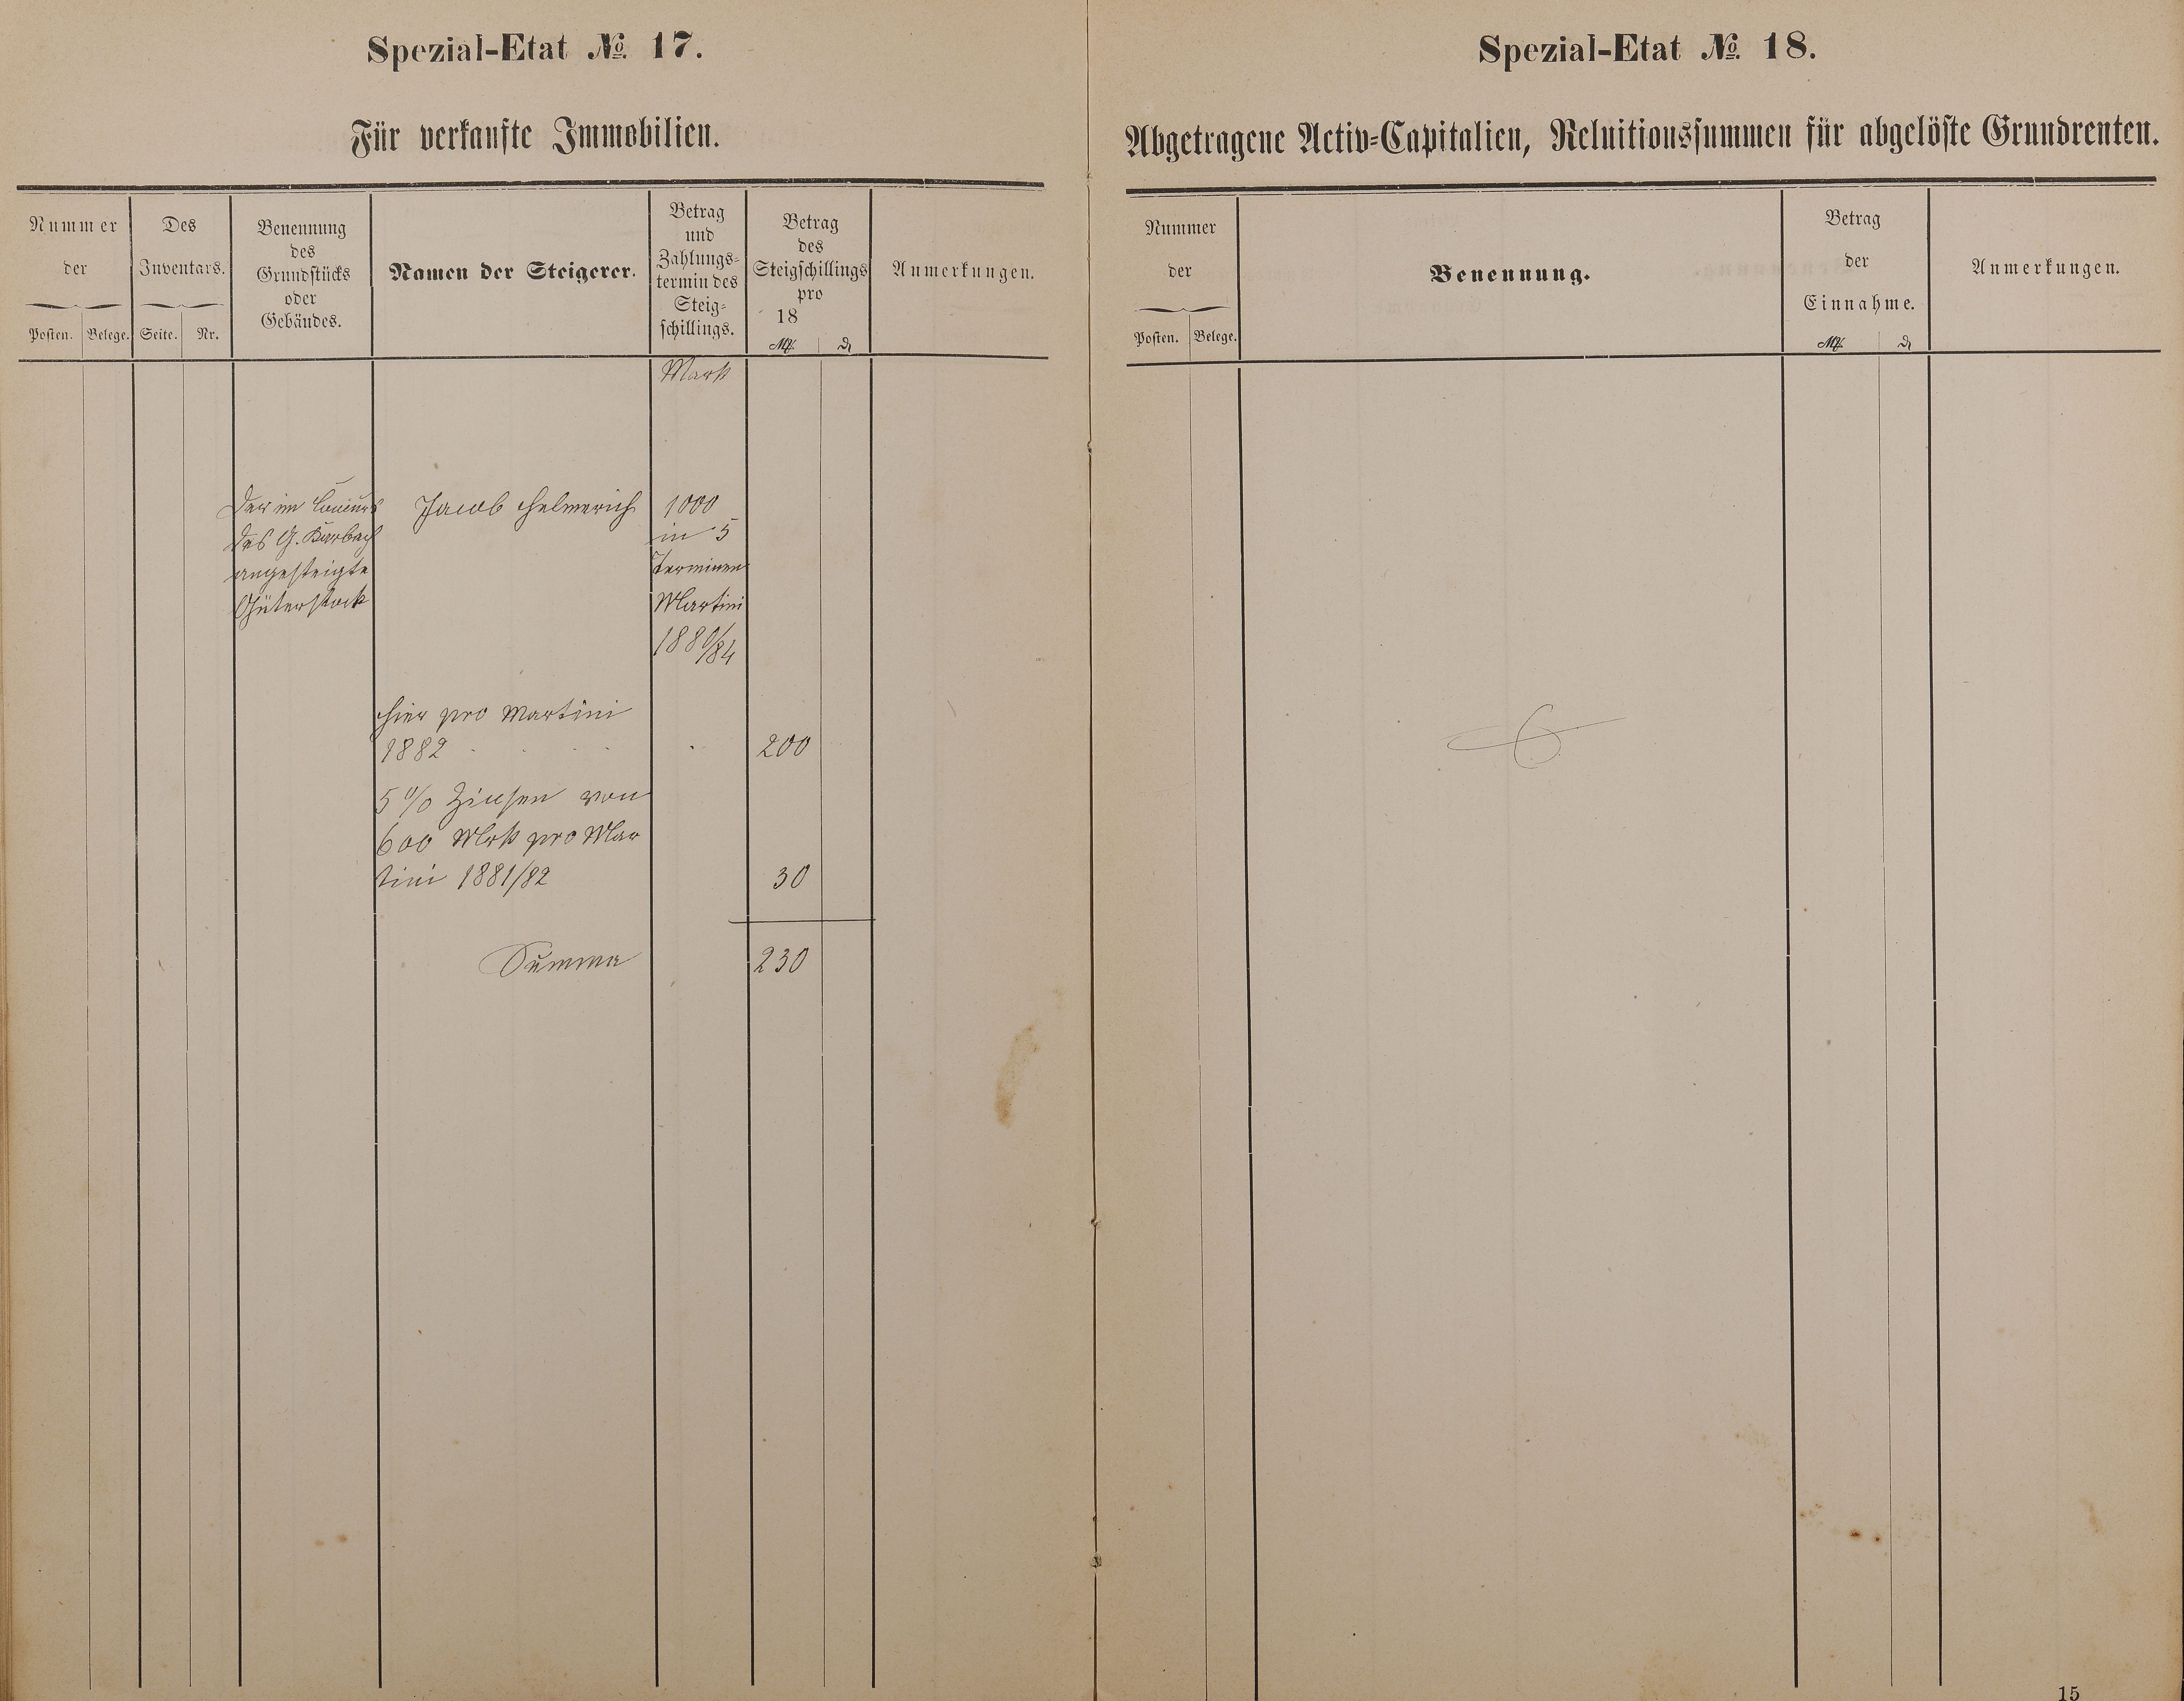 Spezial-Etat № 17.
Für verkaufte Immobilien.
Nummer
der
Posten. Belege.
Des
Inventars.
Seite. Nr.
Benennung
des
Grundstücks
oder
Gebäudes.
Namen der Steigerer.
Betrag
und
Zahlungs-
termin des
Steig-
schillings.
Betrag
des
Steigschillings
pro
18
M. ₰
Anmerkungen.
Mark
Der im Concurs
des G. Karbach
angesteigte
Güterstock
Jacob Helmerich
1000
in 5
Terminen
Martini
1880/84
hier pro Martini
1882 . . . . . 200
5 % Zinsen von
600 Mrk pro Mar
tini 1881/82 30
Summa 230
Spezial-Etat № 18.
Abgetragene Activ-Capitalien, Reluitionssummen für abgelöste Grundrenten.
Nummer
der
Posten. Belege.
Benennung.
Betrag
der
Einnahme.
M. ₰
Anmerkungen.
15